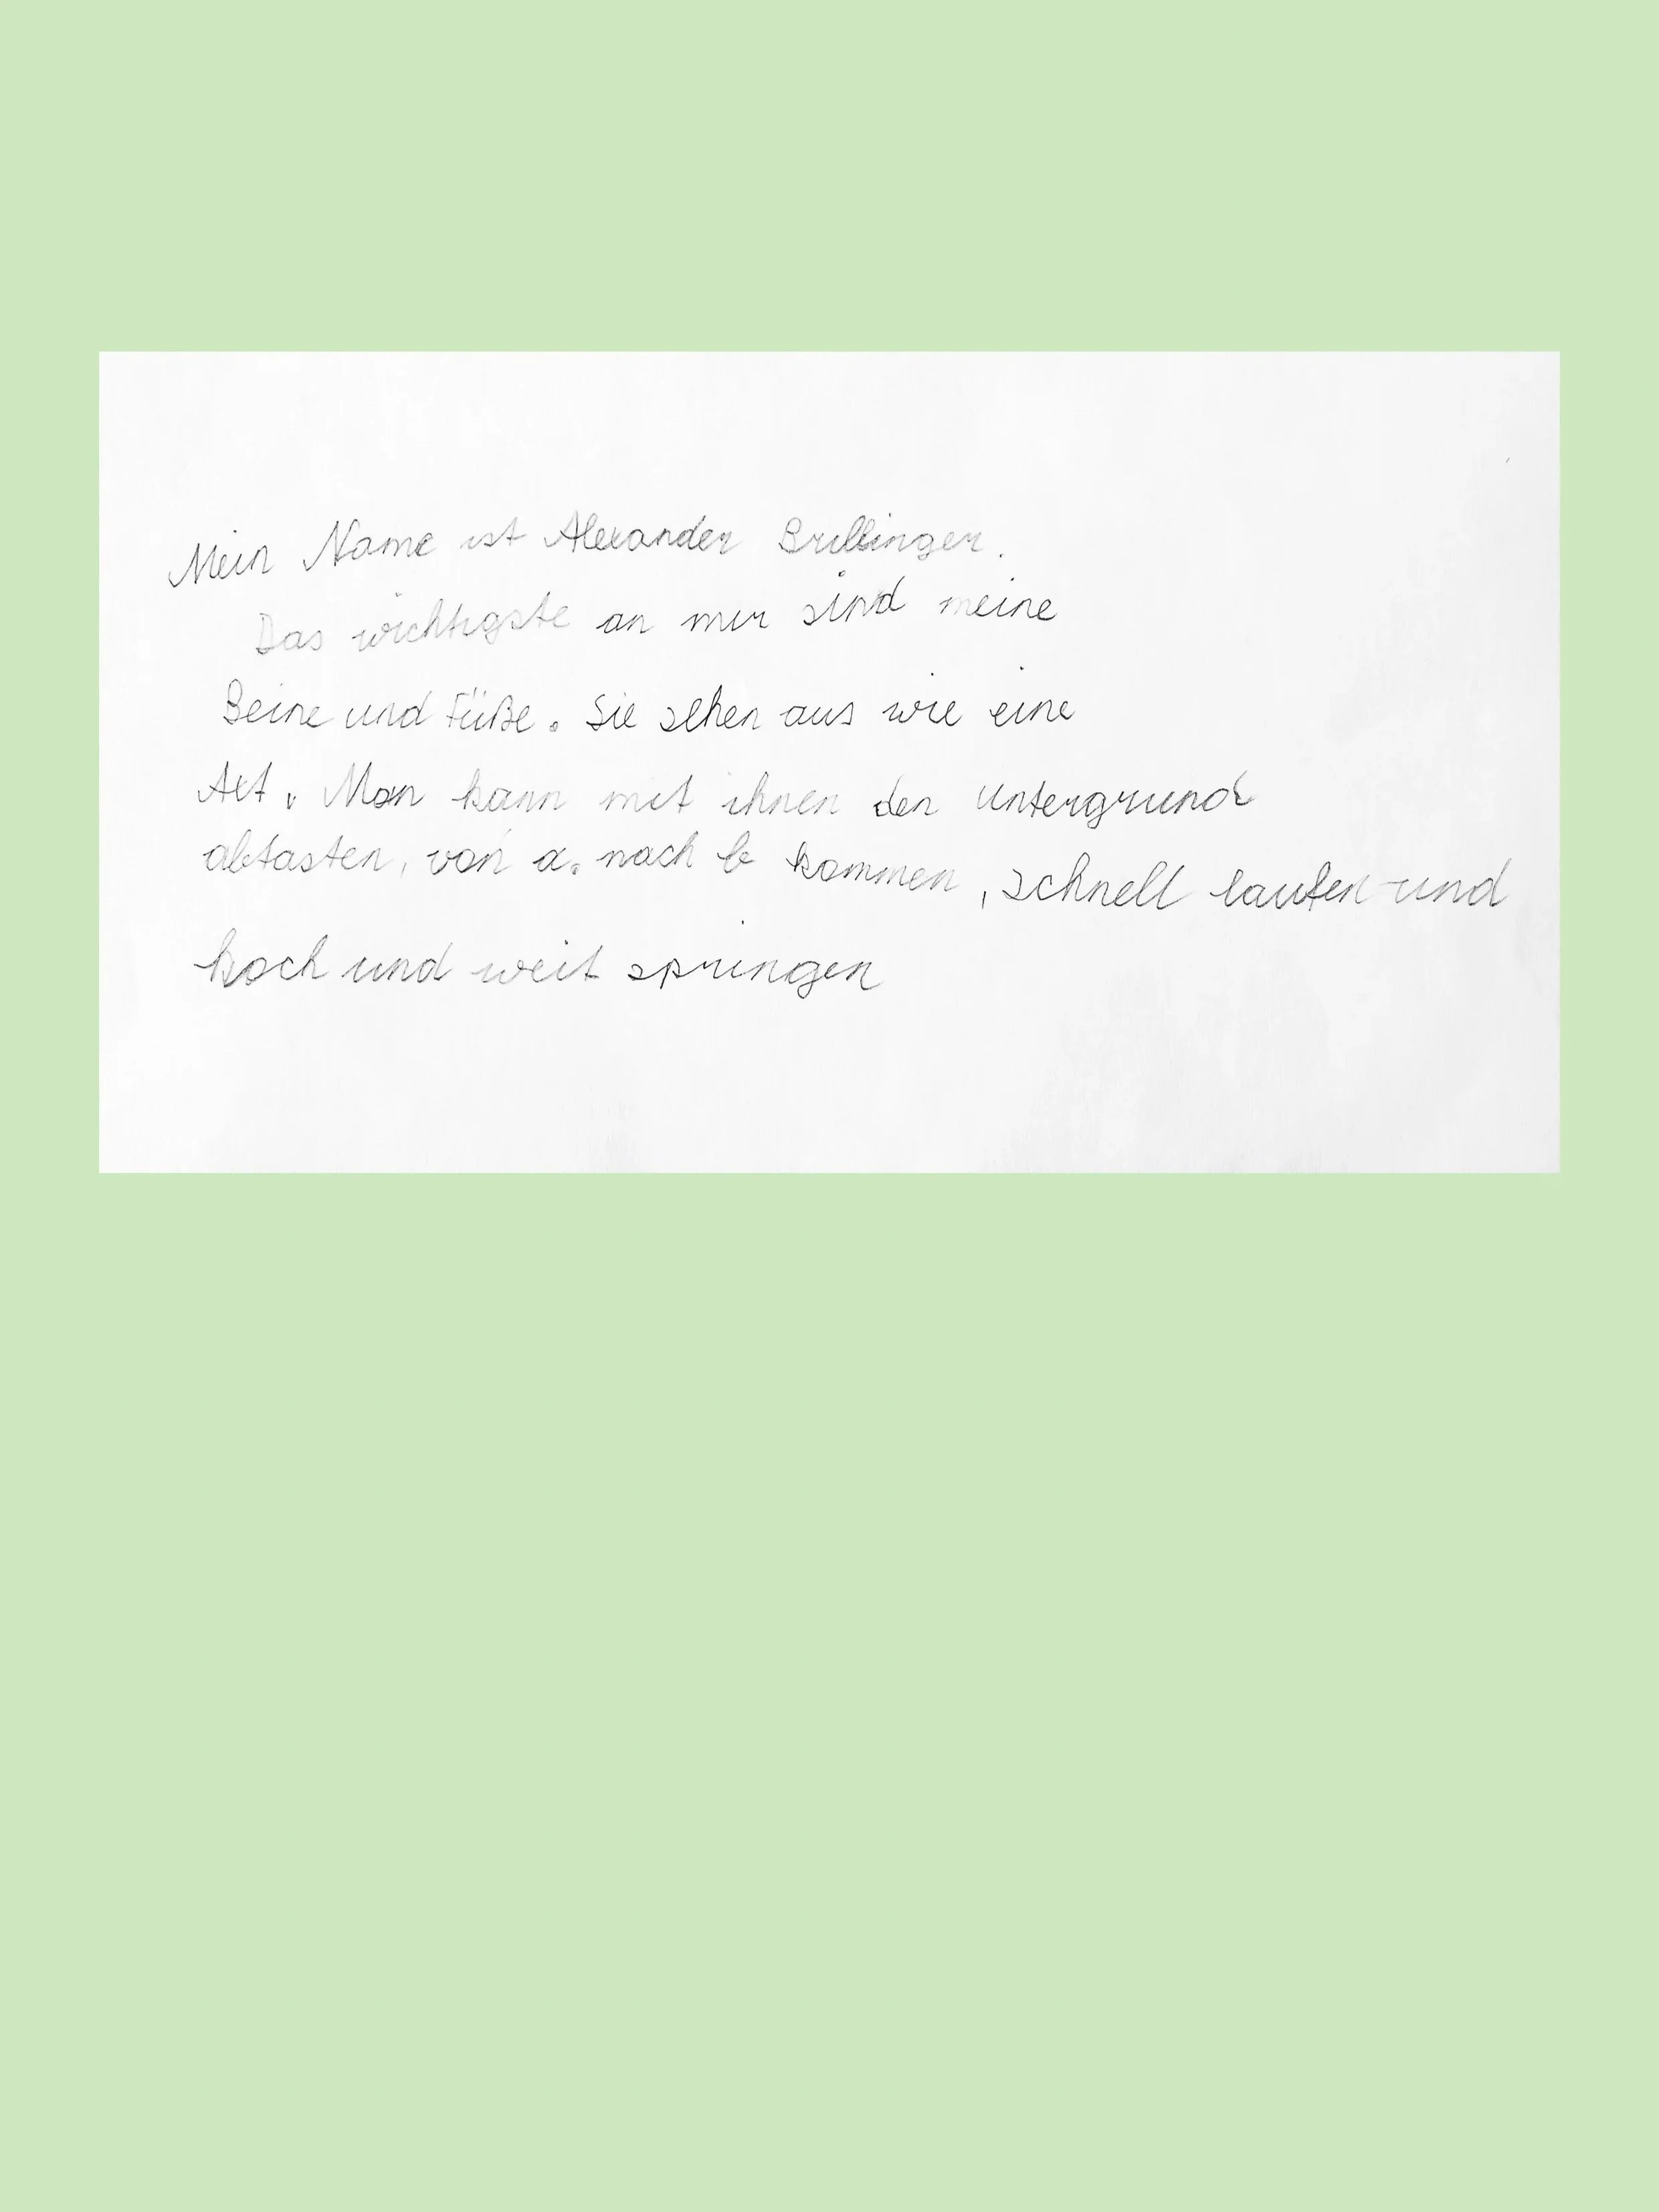 Mein Name ist Alexander Brillinger.
Das wichtigste an mir sind meine
Beine und Füße. Sie sehen aus wie eine
Axt. Man kann mit ihnen den Untergrund
abtasten, von a. nach b kommen, schnell laufen und
hoch und weit springen